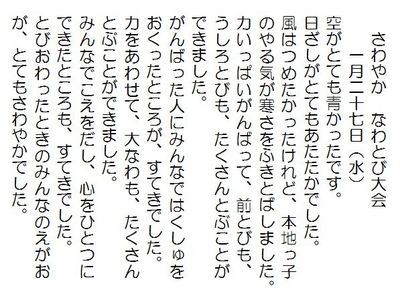 さわやか　なわとび大会
一月二十七日（水）
空がとても青かったです。
日ざしがとてもあたたかでした。
風はつめたかったけれど、本地っ子
のやる気が寒さをふきとばしました。
力いっぱいがんばって、前とびも、
うしろとびも、たくさんとぶことが
できました。
がんばった人にみんなではくしゅを
おくったところが、すてきでした。
力をあわせて、大なわも、たくさん
とぶことができました。
みんなでこえをだし、心をひとつに
できたところも、すてきでした。
とびおわったときのみんなのえがお
が、とてもさわやかでした。